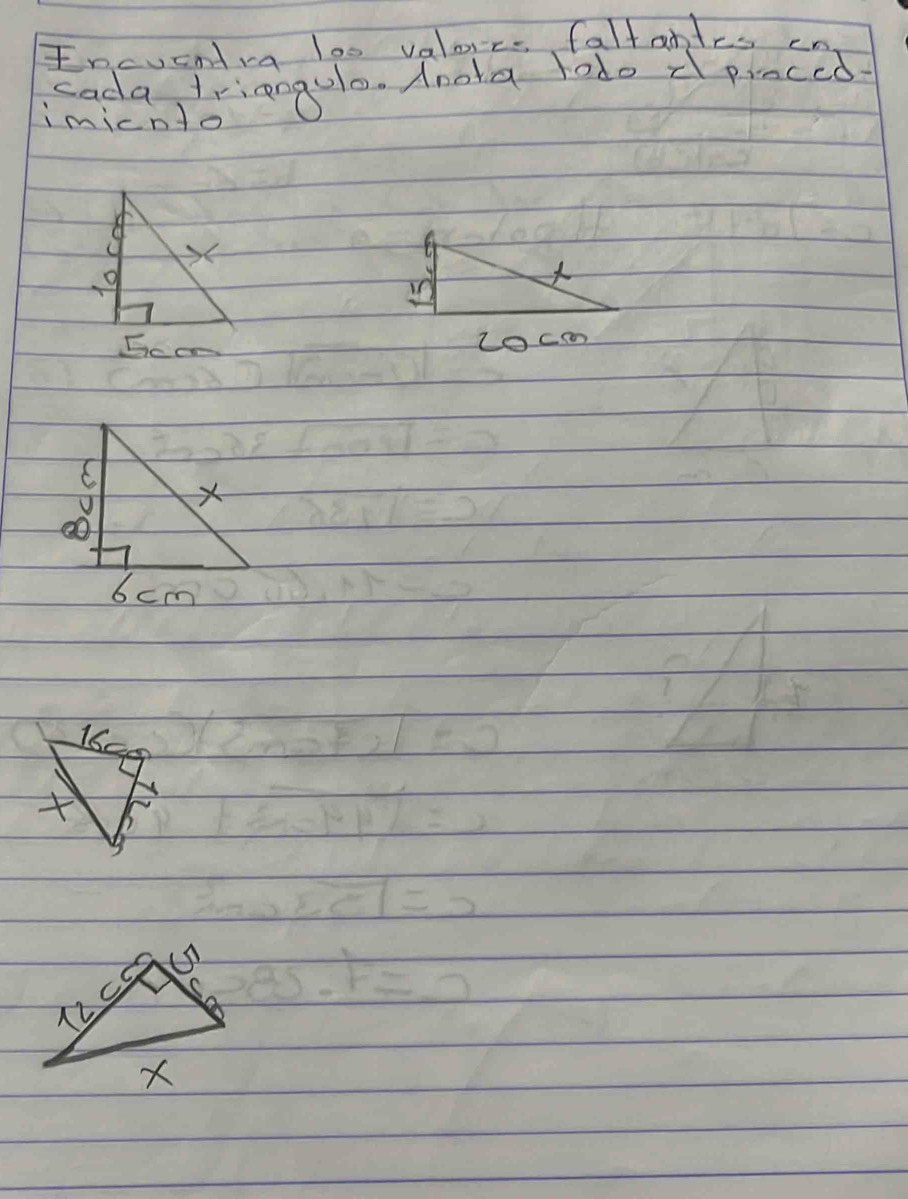 Encuentra los valores faltantes en
cada triangulo. Anota todo el proced-
imiento
10cm
x
5cm
15cm
x
20cm
8cm
x
6cm
16cm
x
12cm
12cm
5cm
x